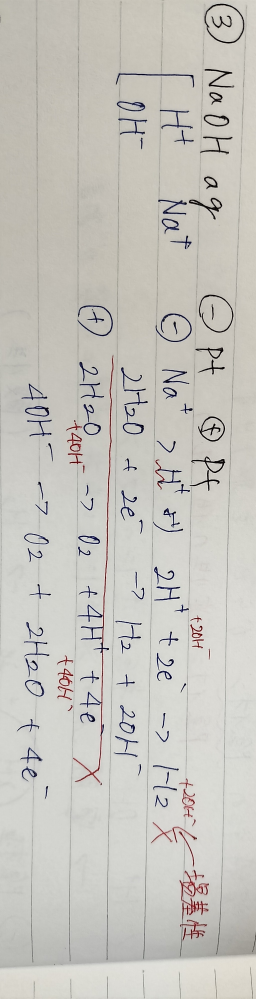 ③ NaOH aq ⊖ Pt ⊕ Pt
H⁺ Na⁺
OH⁻
⊖ Na⁺ > H⁺ より 2H⁺ + 2e⁻ → H₂ ×
+2OH⁻ +2OH⁻ ← 塩基性
2H₂O + 2e⁻ → H₂ + 2OH⁻
⊕ 2H₂O → O₂ + 4H⁺ + 4e⁻ ×
+4OH⁻ +4OH⁻
4OH⁻ → O₂ + 2H₂O + 4e⁻